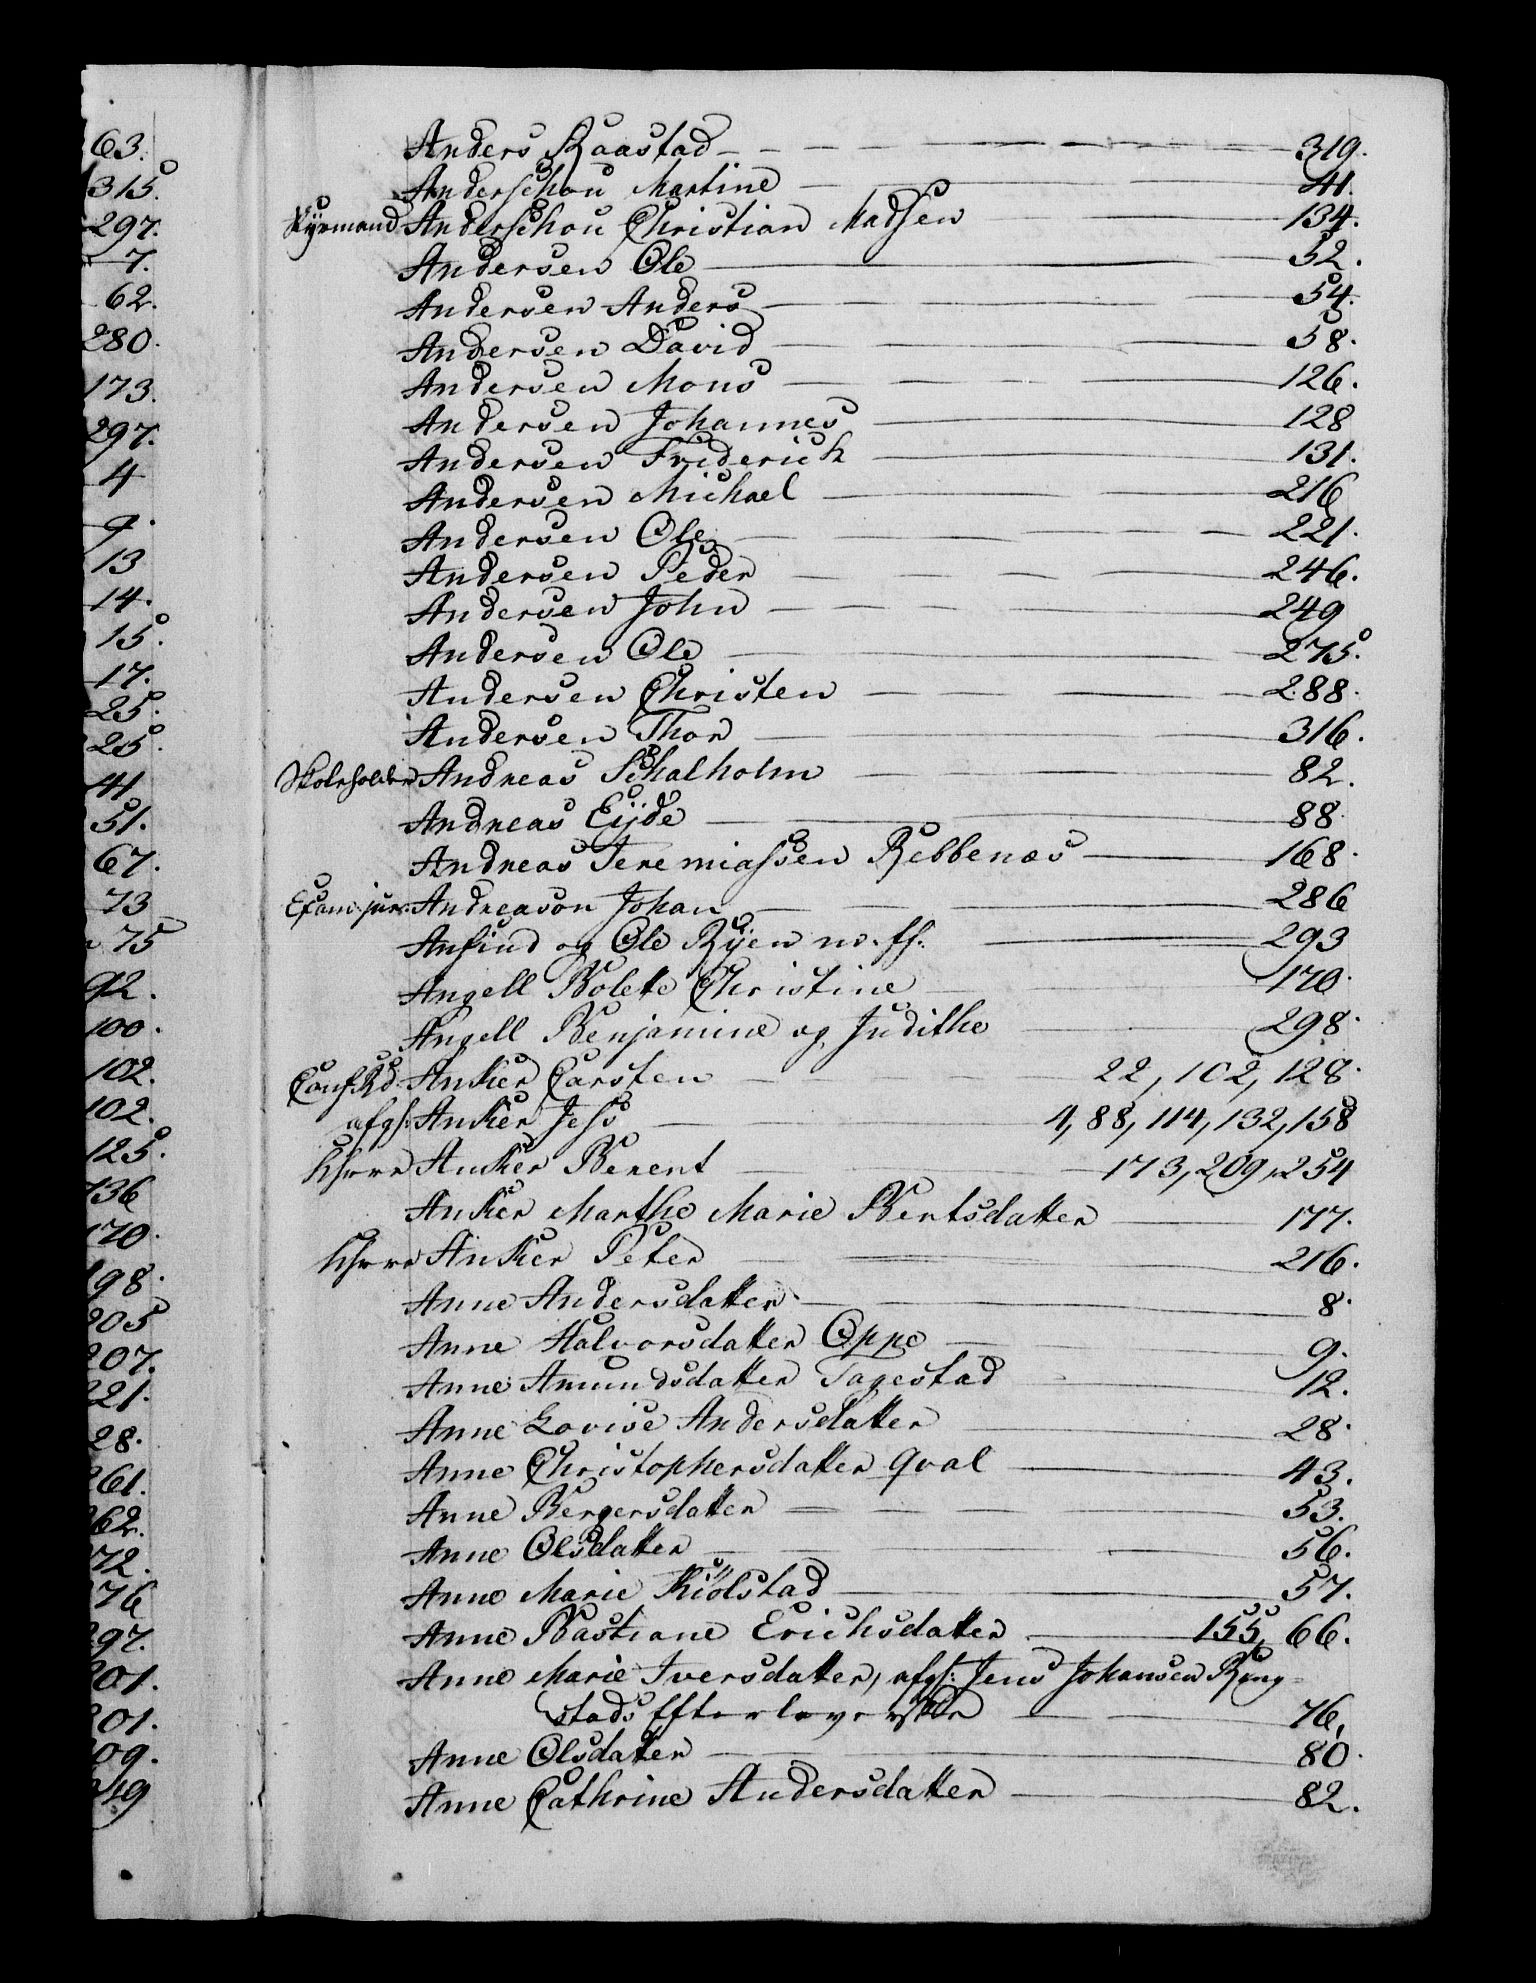 63.
315.
297.
7.
62.
280.
173.
297.
4
9.
13
14.
15.
17.
25.
25.
41
51.
67.
73
75
92.
100.
102.
102.
125.
136
170.
198.
205
207.
221.
28.
261.
262.
72.
76
297.
301.
301.
309.
319
Anders Raastad 319.
Anderschou Martine 41.
Styrmand Anderschou Christian Madsen 134.
Andersen Ole 52.
Andersen Anders 54.
Andersen David 58.
Andersen Mons 126.
Andersen Johannes 128
Andersen Friderich 131.
Andersen Michael 216
Andersen Ole 221.
Andersen Peder 246.
Andersen John 249
Andersen Ole 275.
Andersen Christen 288.
Andersen Thor 316.
Skoleholder Andreas Schalholm 82.
Andreas Eyde 88
Andreas Jeremiassen Rebbenæs 168.
Exam: jur: Andreason Johan 286
Anfind og Ole Ryen m. fl. 293
Angell Bolette Christine 170.
Angell Benjamine og Judithe 298.
Conf: Rd: Anker Carsten 22, 102, 128.
afg: Anker Jess 4, 88, 114, 132, 158
Khrr Anker Berent 173, 209, 254
Anker Marthe Marie Berntsdatter 177.
Khrr Anker Peter 216.
Anne Andersdatter 8.
Anne Halvorsdatter Oppe 9.
Anne Amundsdatter Tagestad 12.
Anne Lovise Andersdatter 28.
Anne Christophersdatter Qval 43.
Anne Bergersdatter 53.
Anne Olsdatter 56.
Anne Marie Kiölstad 57.
Anne Bastiane Erichsdatter 155, 66.
Anne Marie Iversdatter, afg: Jens Johansen Ring-
stads Efterleverske 76,
Anne Olsdatter 80.
Anne Cathrine Andersdatter 82.